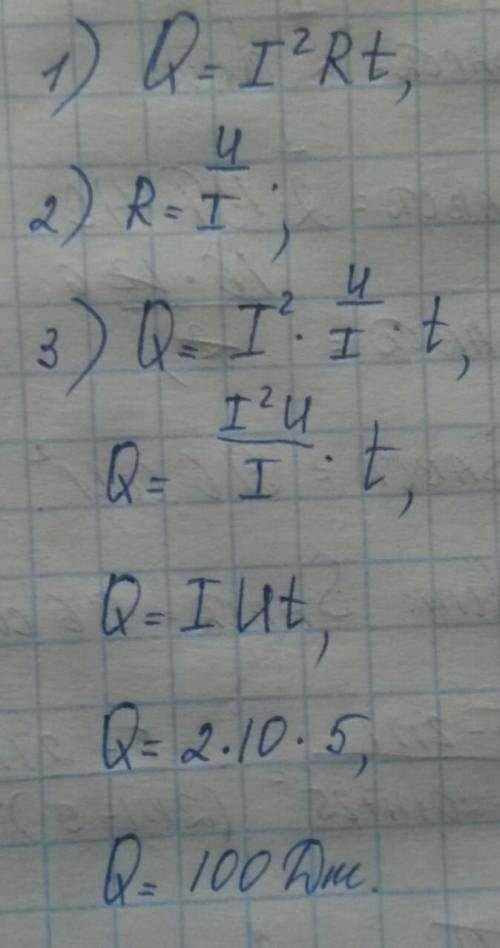 1) Q = I²Rt,
2) R = U/I ;
3) Q = I² · U/I · t,
Q = I²U/I · t,
Q = IUt,
Q = 2·10·5,
Q = 100 Дж.